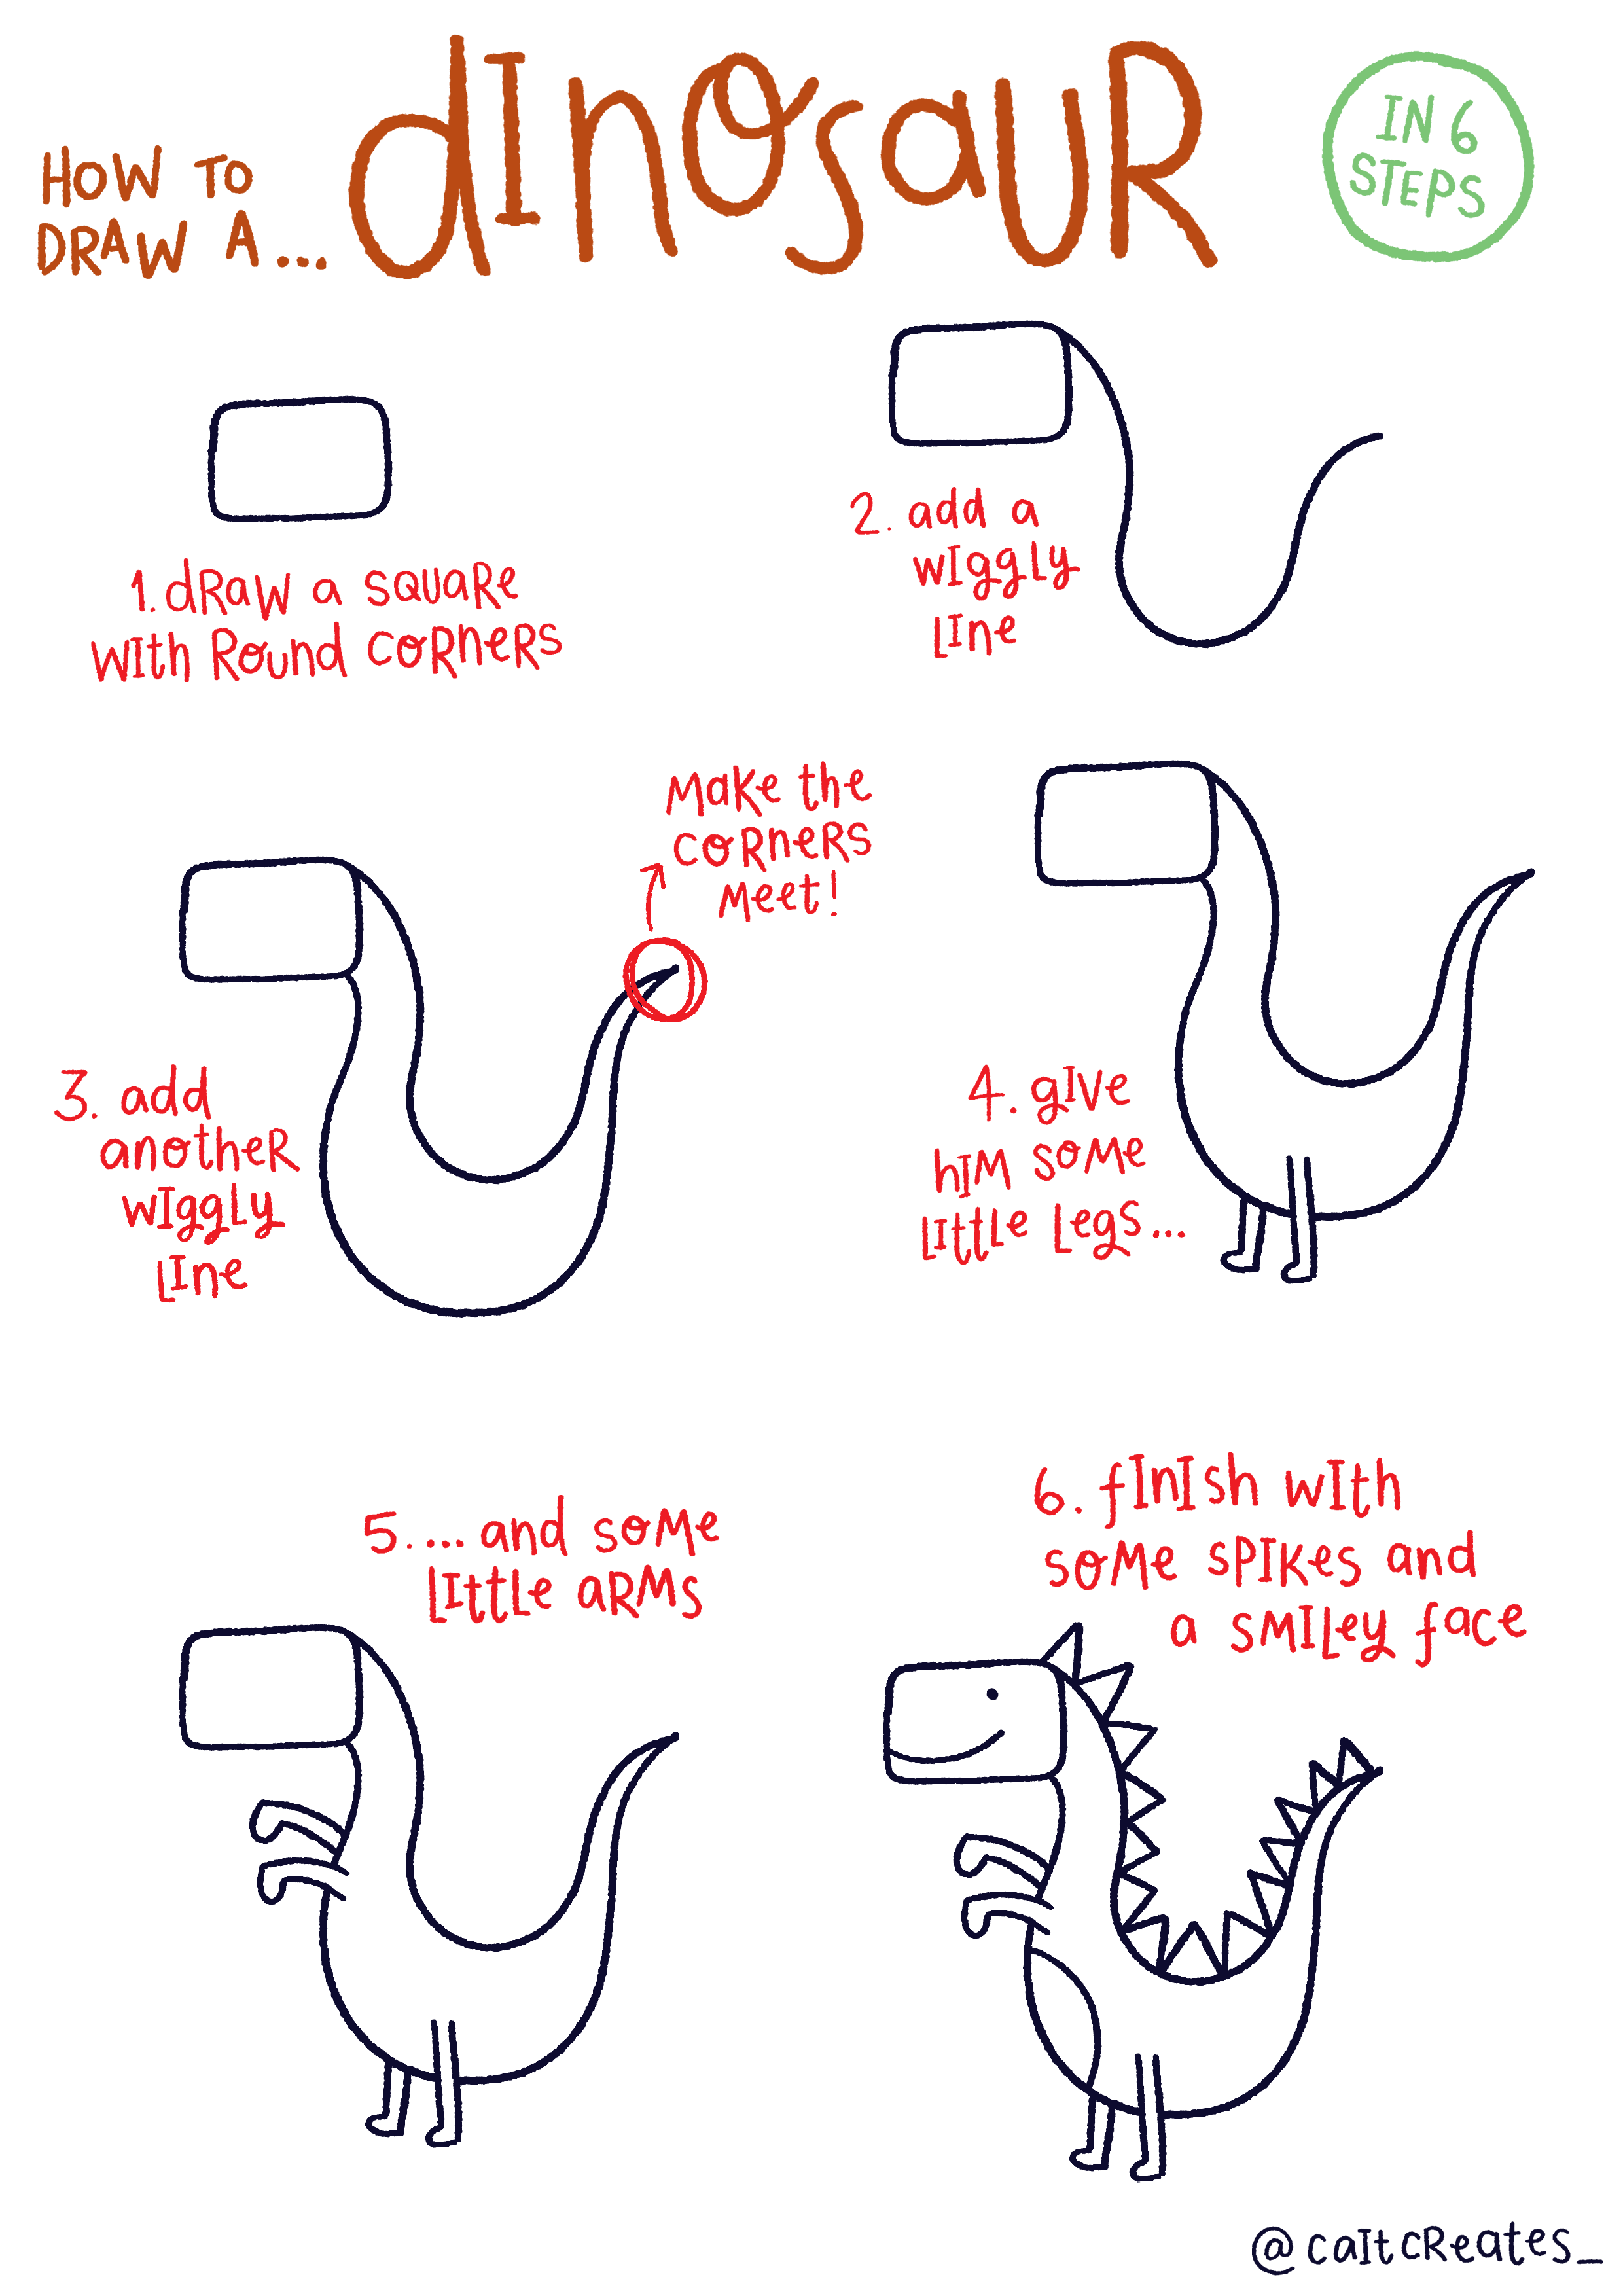 HOW TO
DRAW A...
dINOSaUR
IN 6
STEPS
1. dRaW a SQUaRe
WITh ROUnd CORneRS
2. add a
WIggLy
LIne
Make the
CORneRS
Meet!
3. add
anotheR
WIggLy
LIne
4. gIVe
hIM SOMe
LIttLe Legs...
5. ... and SOMe
LIttLe aRMS
6. fInISh WITh
SOMe SPIKes and
a SMILey face
@caItcReates_